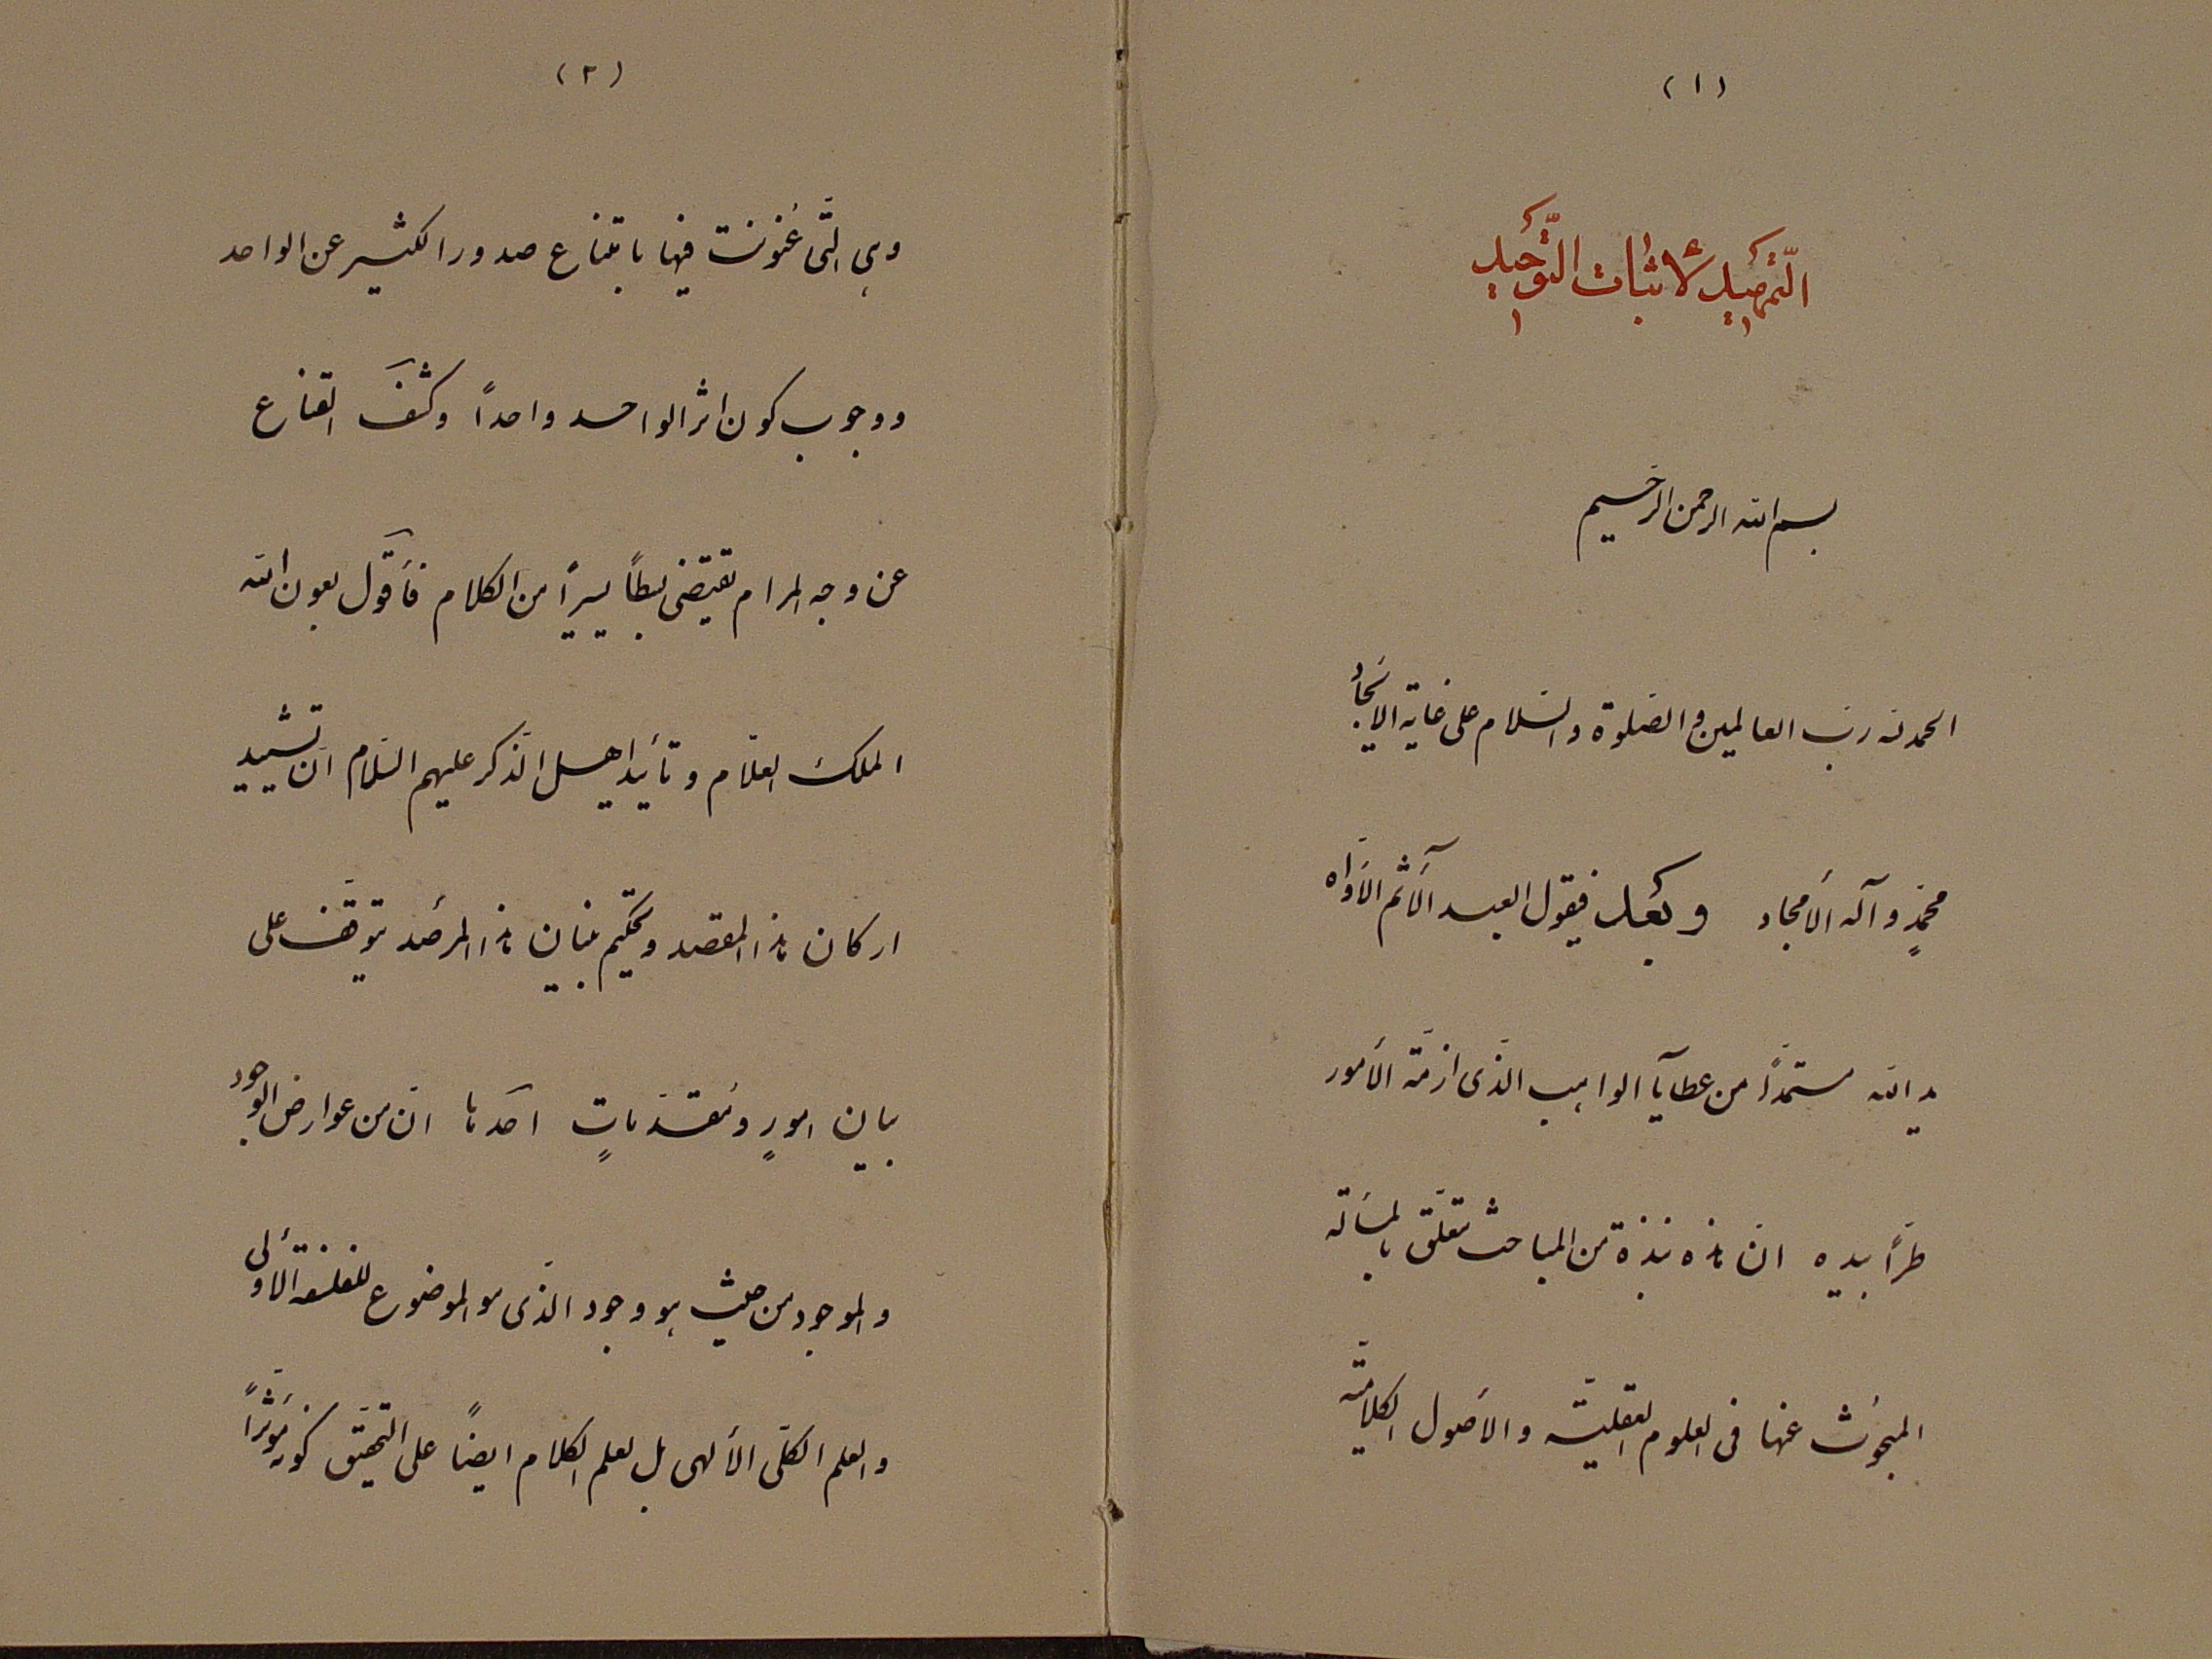 (١)
التَّمهيد لإثبات التَّوحيد
بسم الله الرحمن الرّحيم
الحمد لله ربّ العالمين والصّلوة والسّلام على غاية الايجاد
محمّدٍ وآله الأمجاد وبَعد فيقول العبد الآثم الأوّاه
يد الله مستمدّاً من عطايا الواهب الّذى ازمّة الأمور
طرّاً بيده انّ هذه نبذة من المباحث تتعلّق بالمسألة
المبحوث عنها فى العلوم العقليّة والأصول الكلاميّة
(٢)
وهى الّتى عُنونت فيها بامتناع صدور الكثير عن الواحد
ووجوب كون اثر الواحد واحداً وكشف القناع
عن وجه المرام يقتضى بسطاً يسيراً من الكلام فأقول بعون الله
الملك العلّام وتأييد اهل الذّكر عليهم السّلام انّ تشييد
اركان هذا المقصد وتحكيم بنيان هذا المرصد يتوقّف على
بيان امورٍ ومقدّماتٍ احدها انّ من عوارض الوجود
والموجود من حيث هو وجود الّذى هو الموضوع للفلسفة الاُولى
والعلم الكلّى الألهى بل لعلم الكلام ايضاً على التّحقيق كونه مؤثّراً